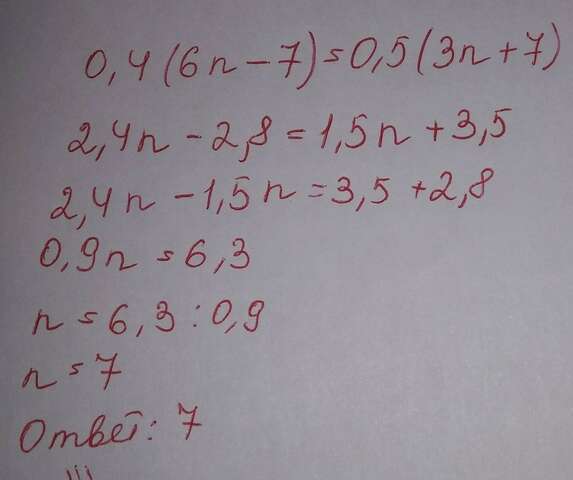 0,4(6n-7)=0,5(3n+7)
2,4n-2,8=1,5n+3,5
2,4n-1,5n=3,5+2,8
0,9n=6,3
n=6,3:0,9
n=7
Ответ: 7